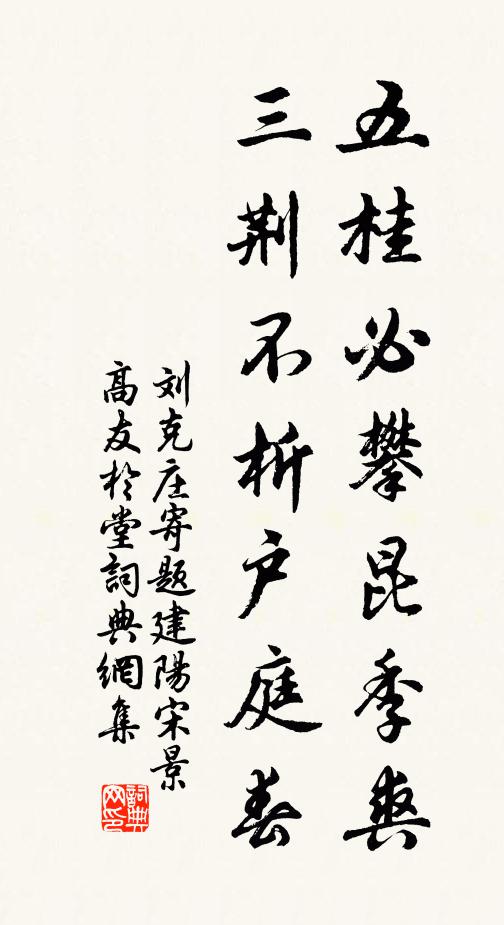 五桂必攀昆季爽
三荆不析户庭春
刘克庄寄题建陽宋景
高友於堂詞典網集
詞典网印